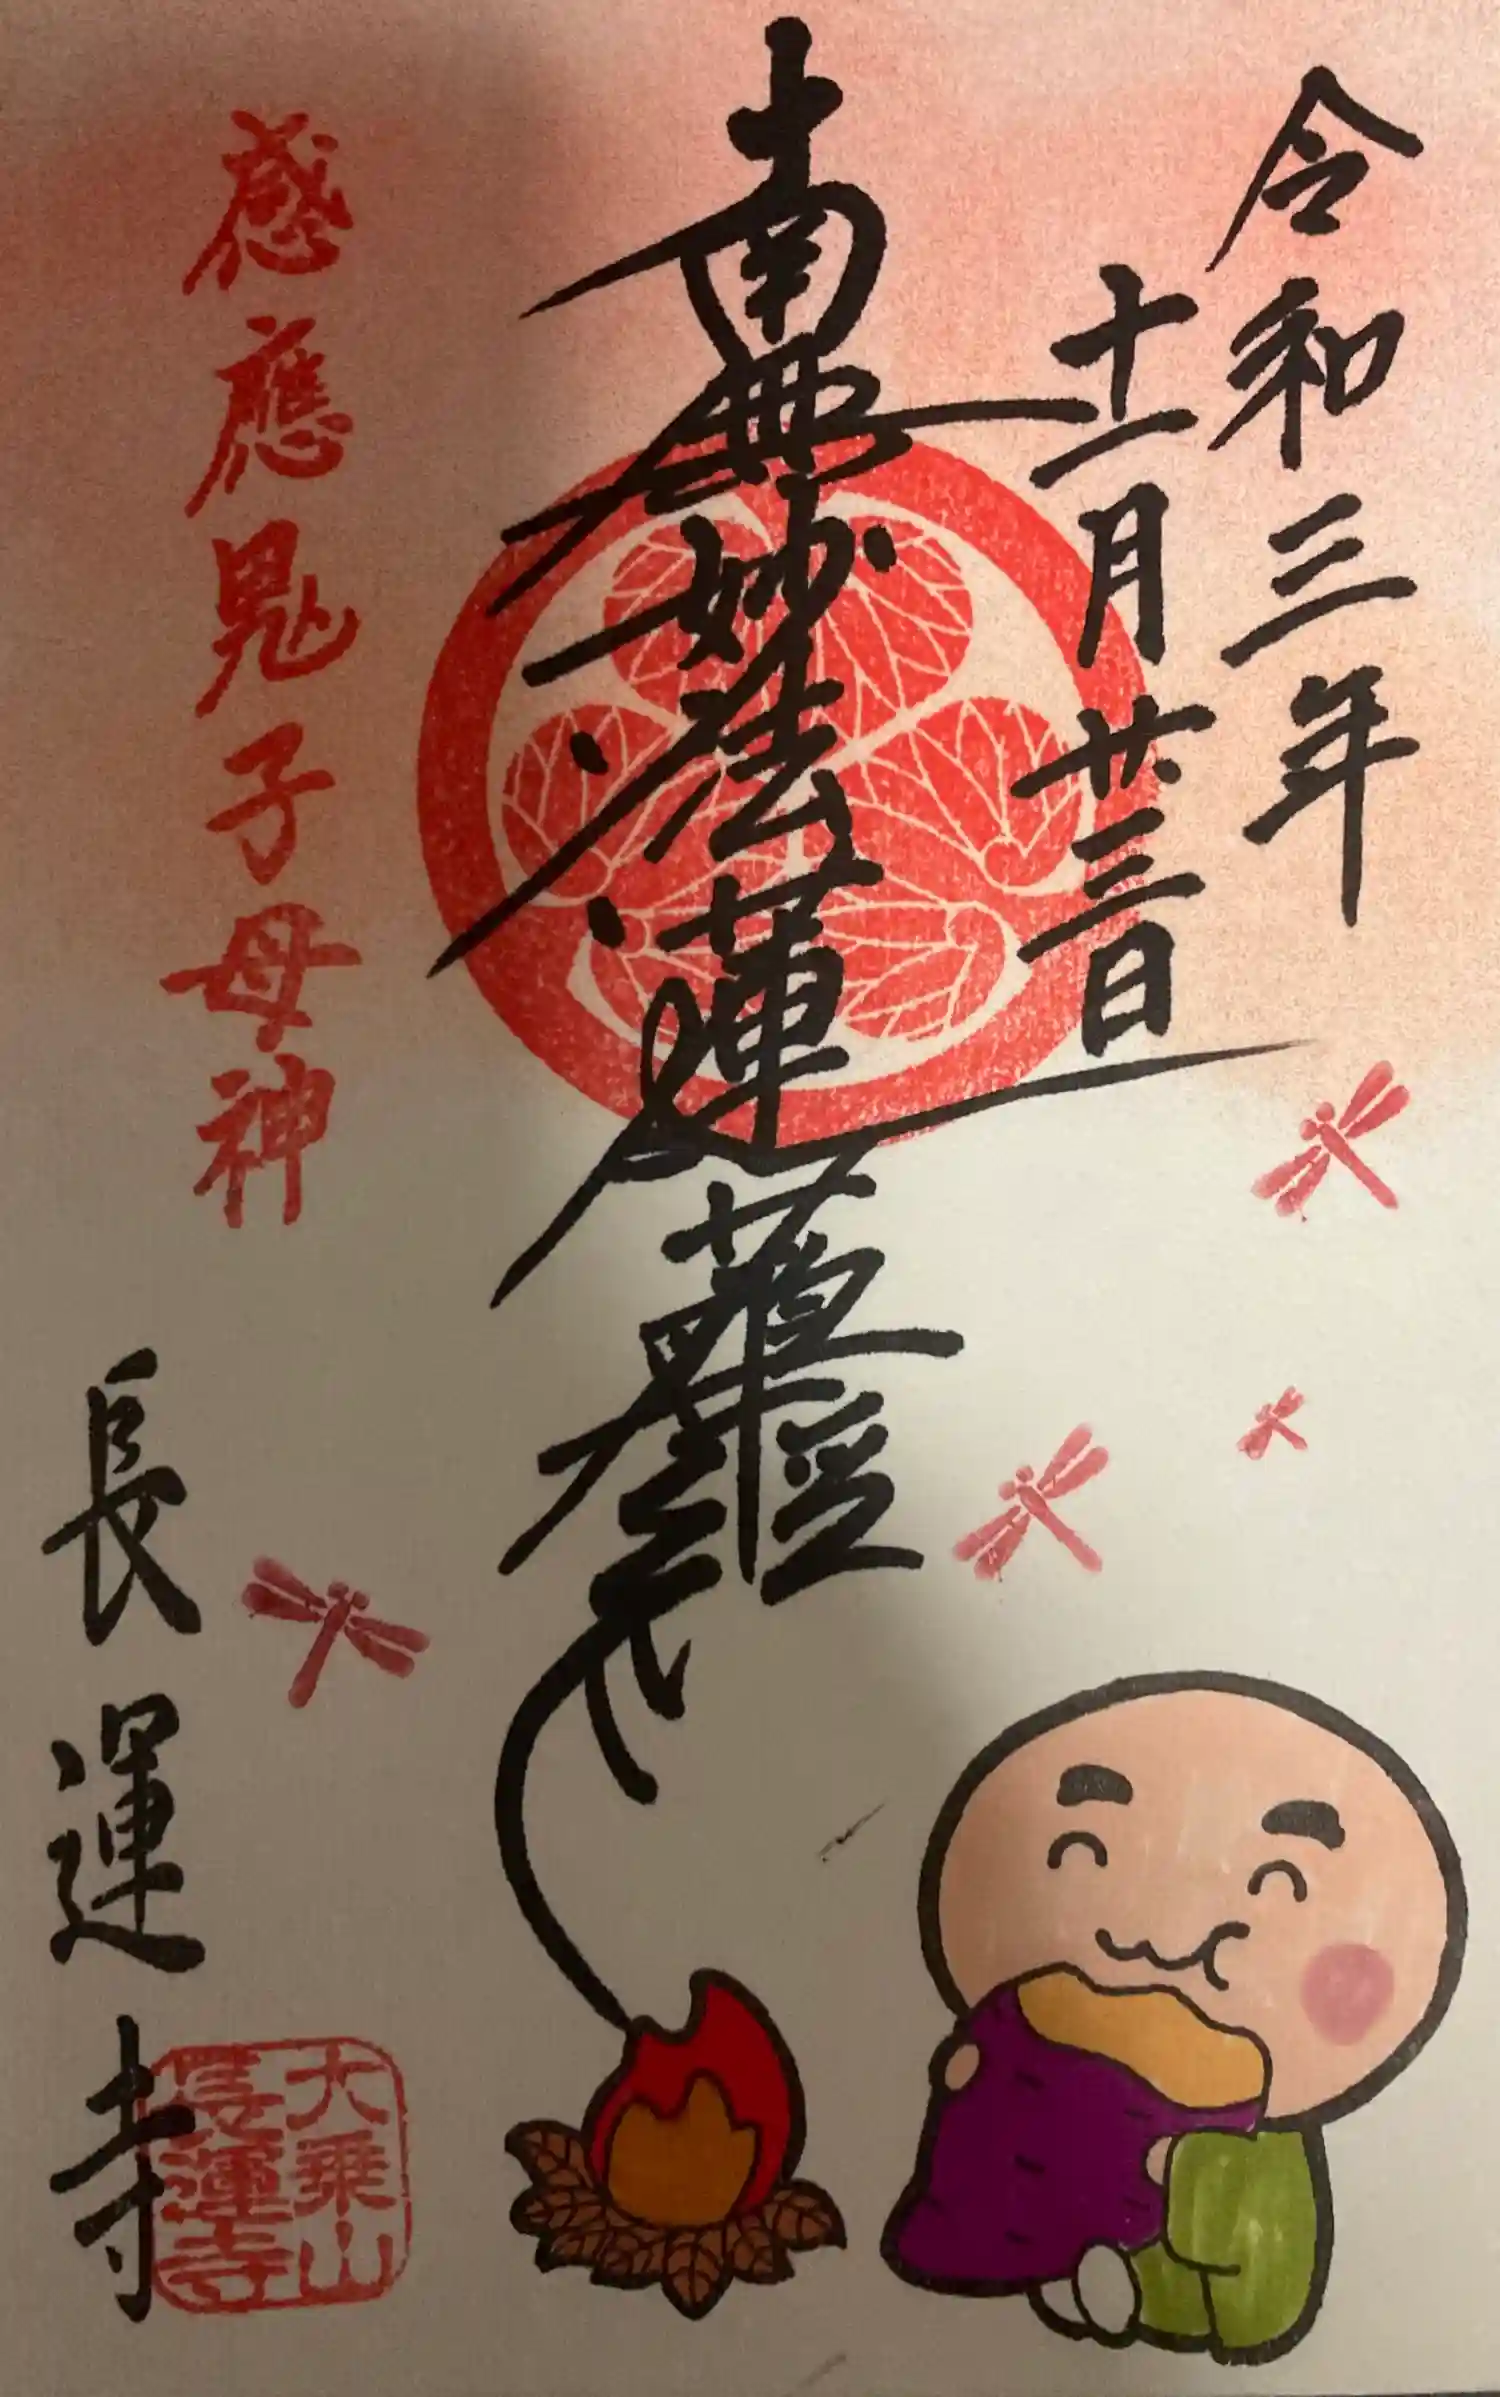 令和三年
十一月廿三日
南無妙法蓮華經
感應鬼子母神
長運寺
大乗山
長運寺